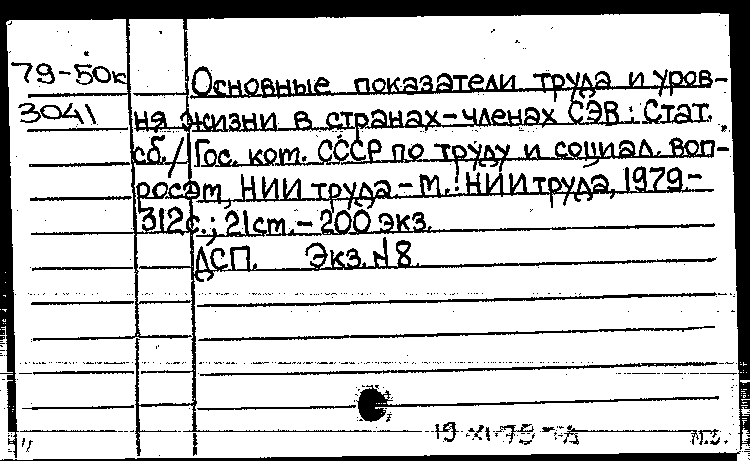 79-50к Основные показатели труда и уров-
3041 ня жизни в странах-членах СЭВ: Стат.
сб./ Гос. ком. СССР по труду и социал. воп-
росам, НИИ труда.-М.: НИИ труда, 1979-
312с.; 21см.-200 экз.
ДСП. Экз. №8.
19 XI-79